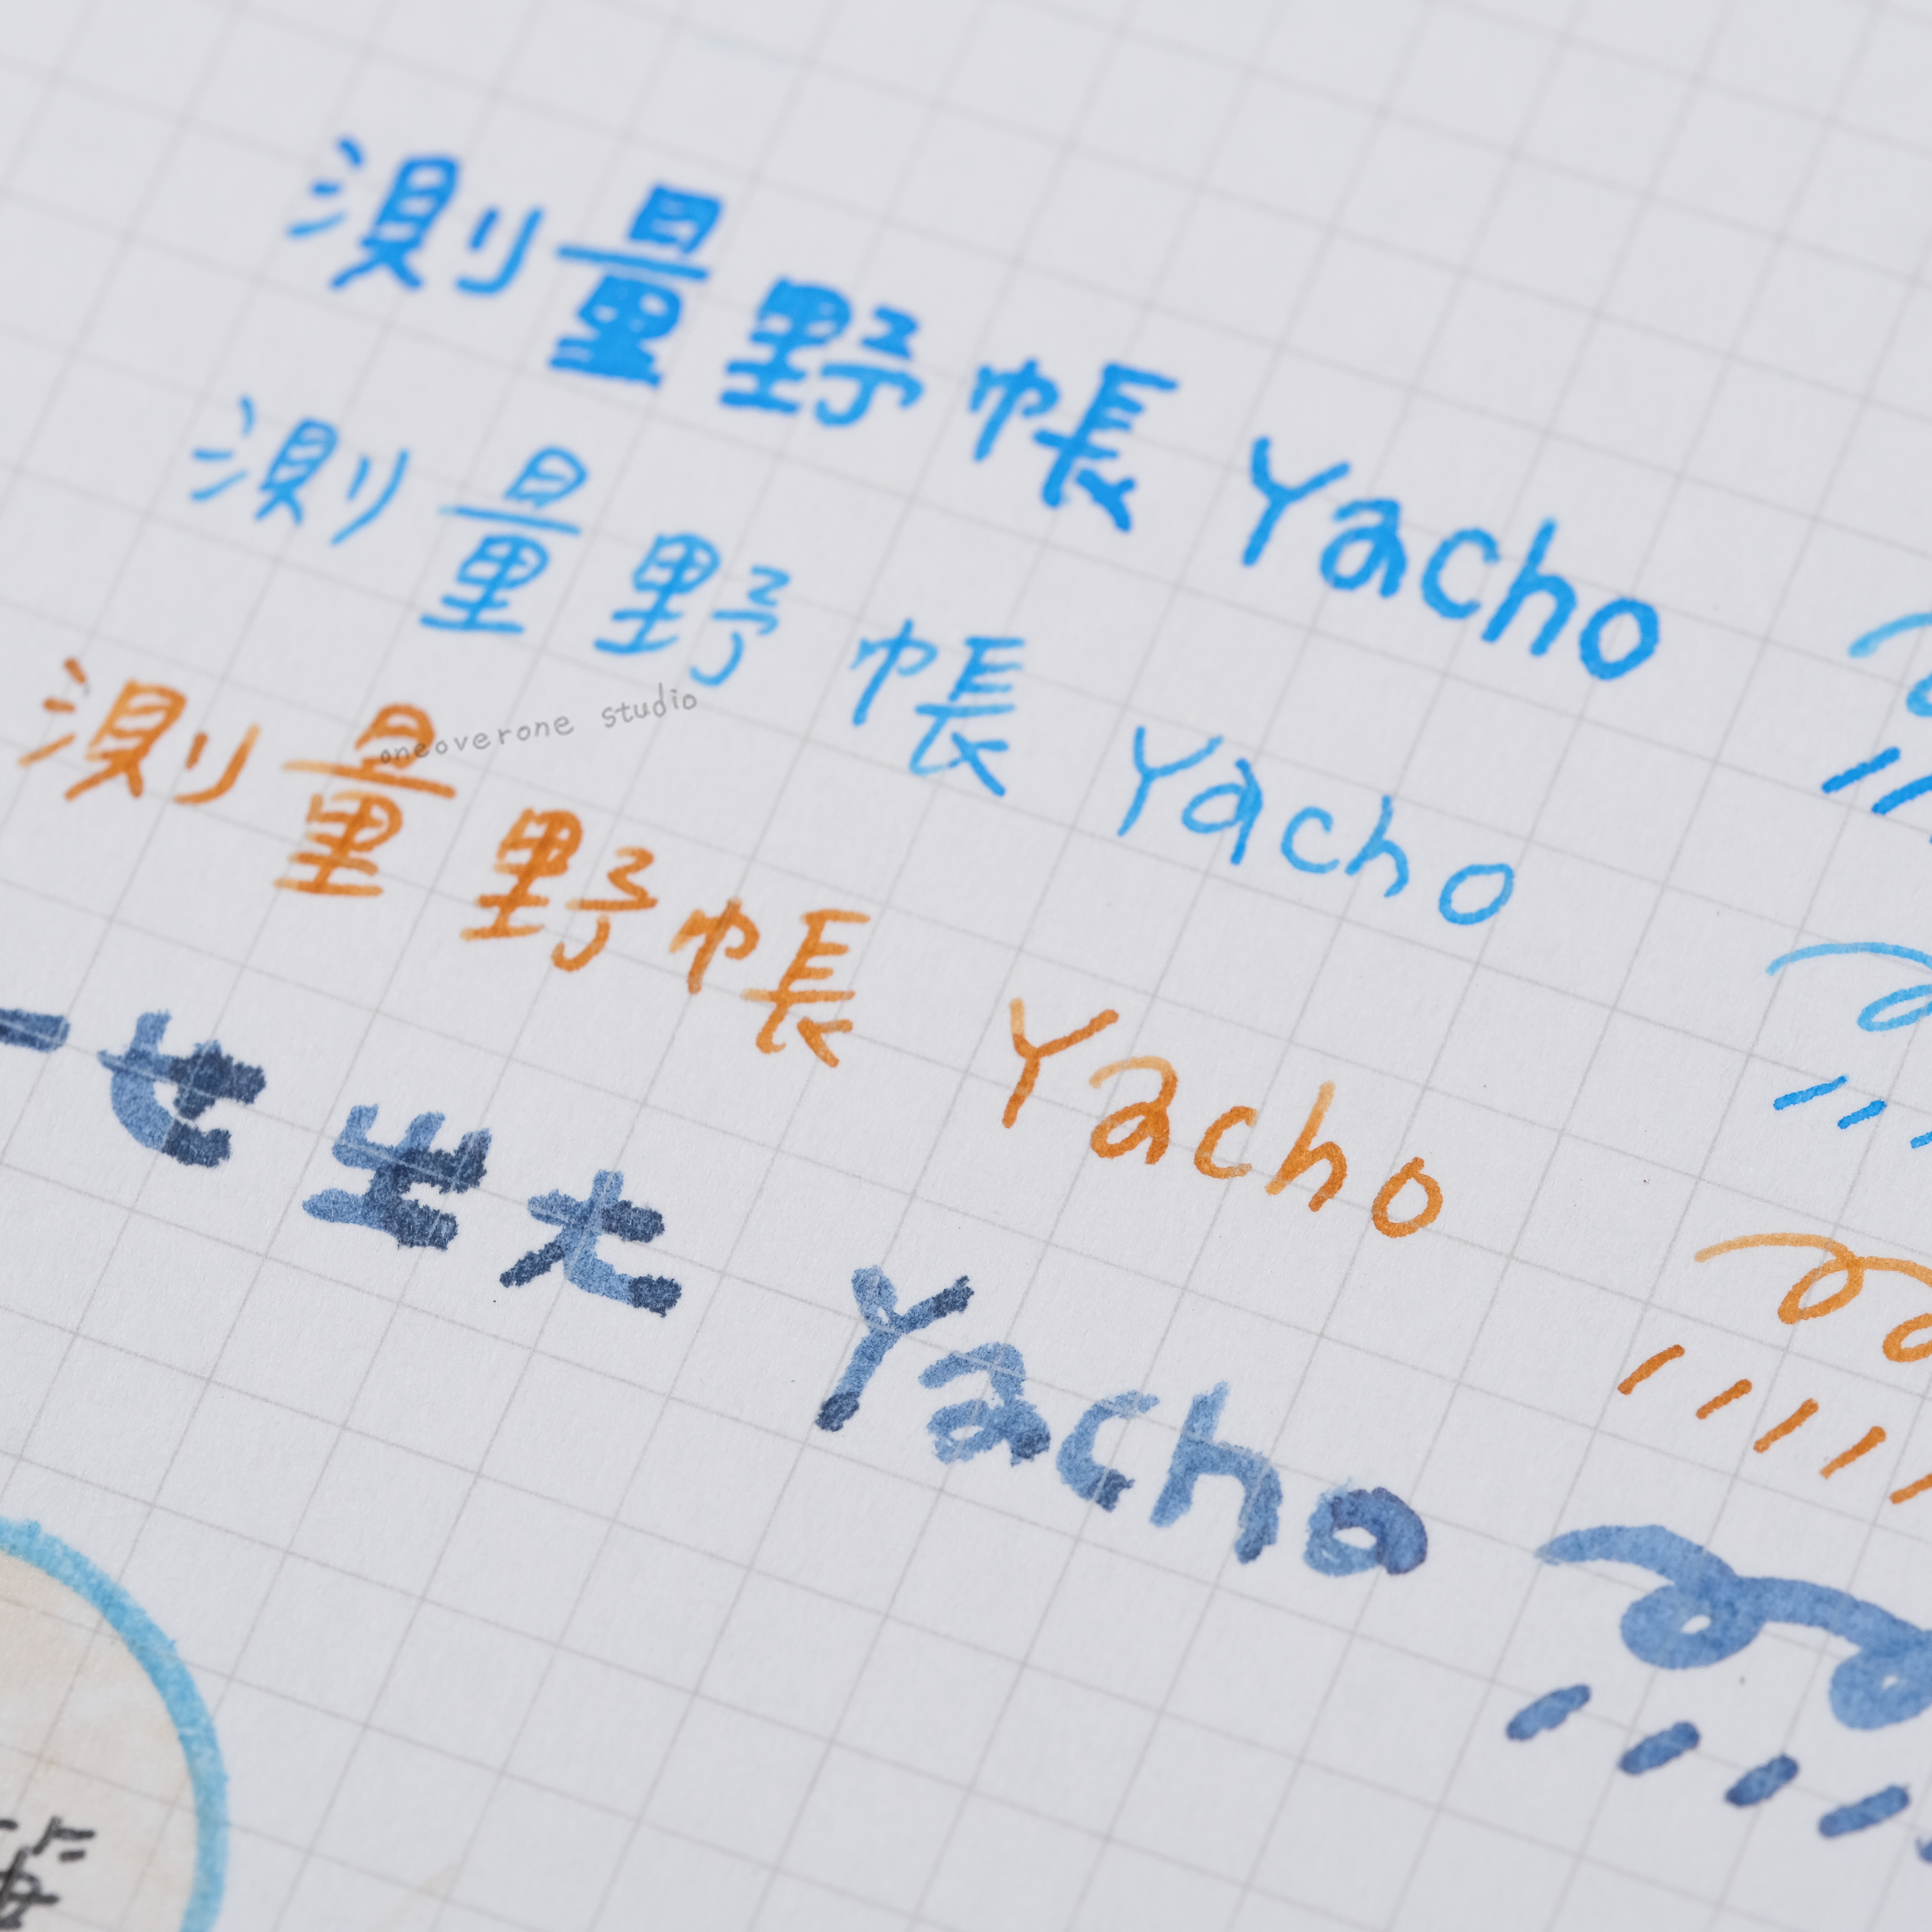 測量野帳 Yacho
測量野帳 Yacho
oneoverone studio
測量野帳 Yacho
一世出大 Yacho